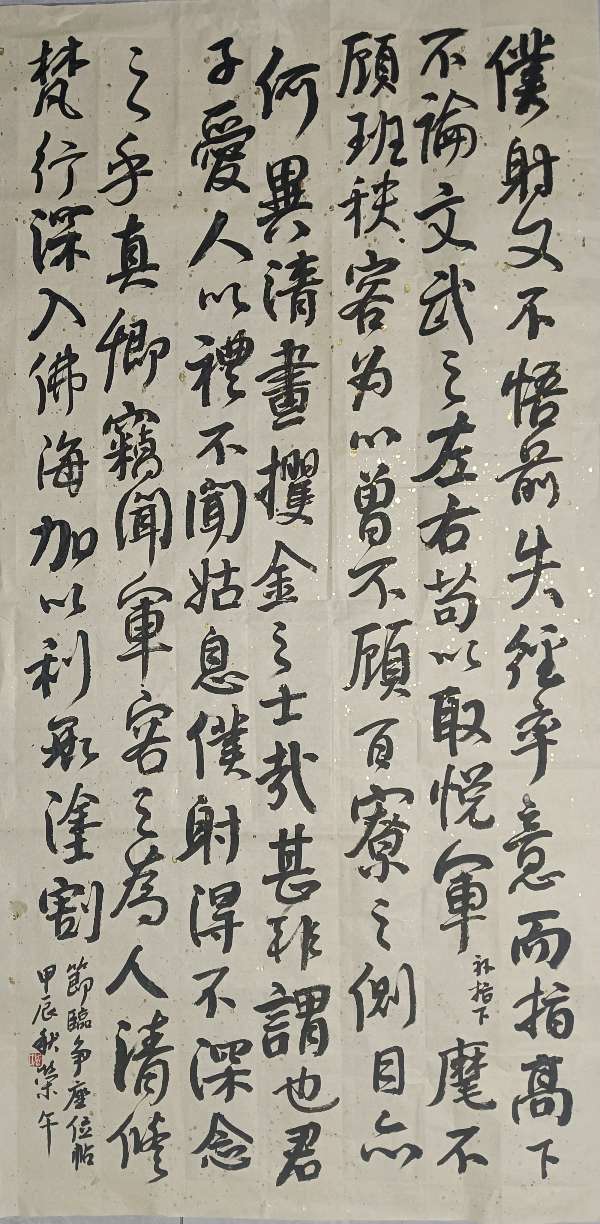 僕射又不悟前失徑率意而指高下
不論文武之左右苟以取悅軍
補指下
麾不
顧班秩容為心曾不顧百寮之側目亦
何異清晝攫金之士哉甚非謂也君
子愛人以禮不聞姑息僕射得不深念
之乎真卿竊聞軍容之為人清修
梵行深入佛海加以利衰塗割
節臨爭座位帖
甲辰秋榮午